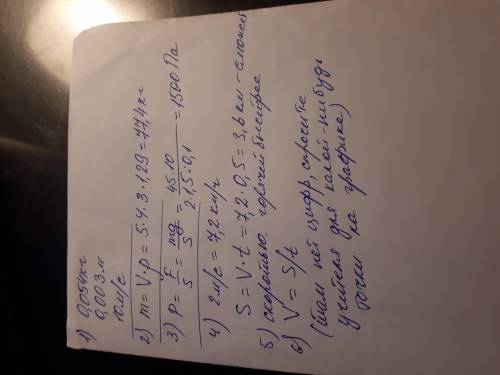 1) 0,054кг
0,003м
10м/с
2) m = V·ρ = 5·4·3·1,29 = 77,4 кг
3) P = F/S = mg/S = 45·10/2·1,5:0,1 = 1500 Па
4) 2м/с = 7,2 км/ч
S = V·t = 7,2·0,5 = 3,6 км -
5) скоростью. горячей быстрее
6) V = S/t
(там нет цифр, спросите
учителя для какой-нибудь
точки на графике)